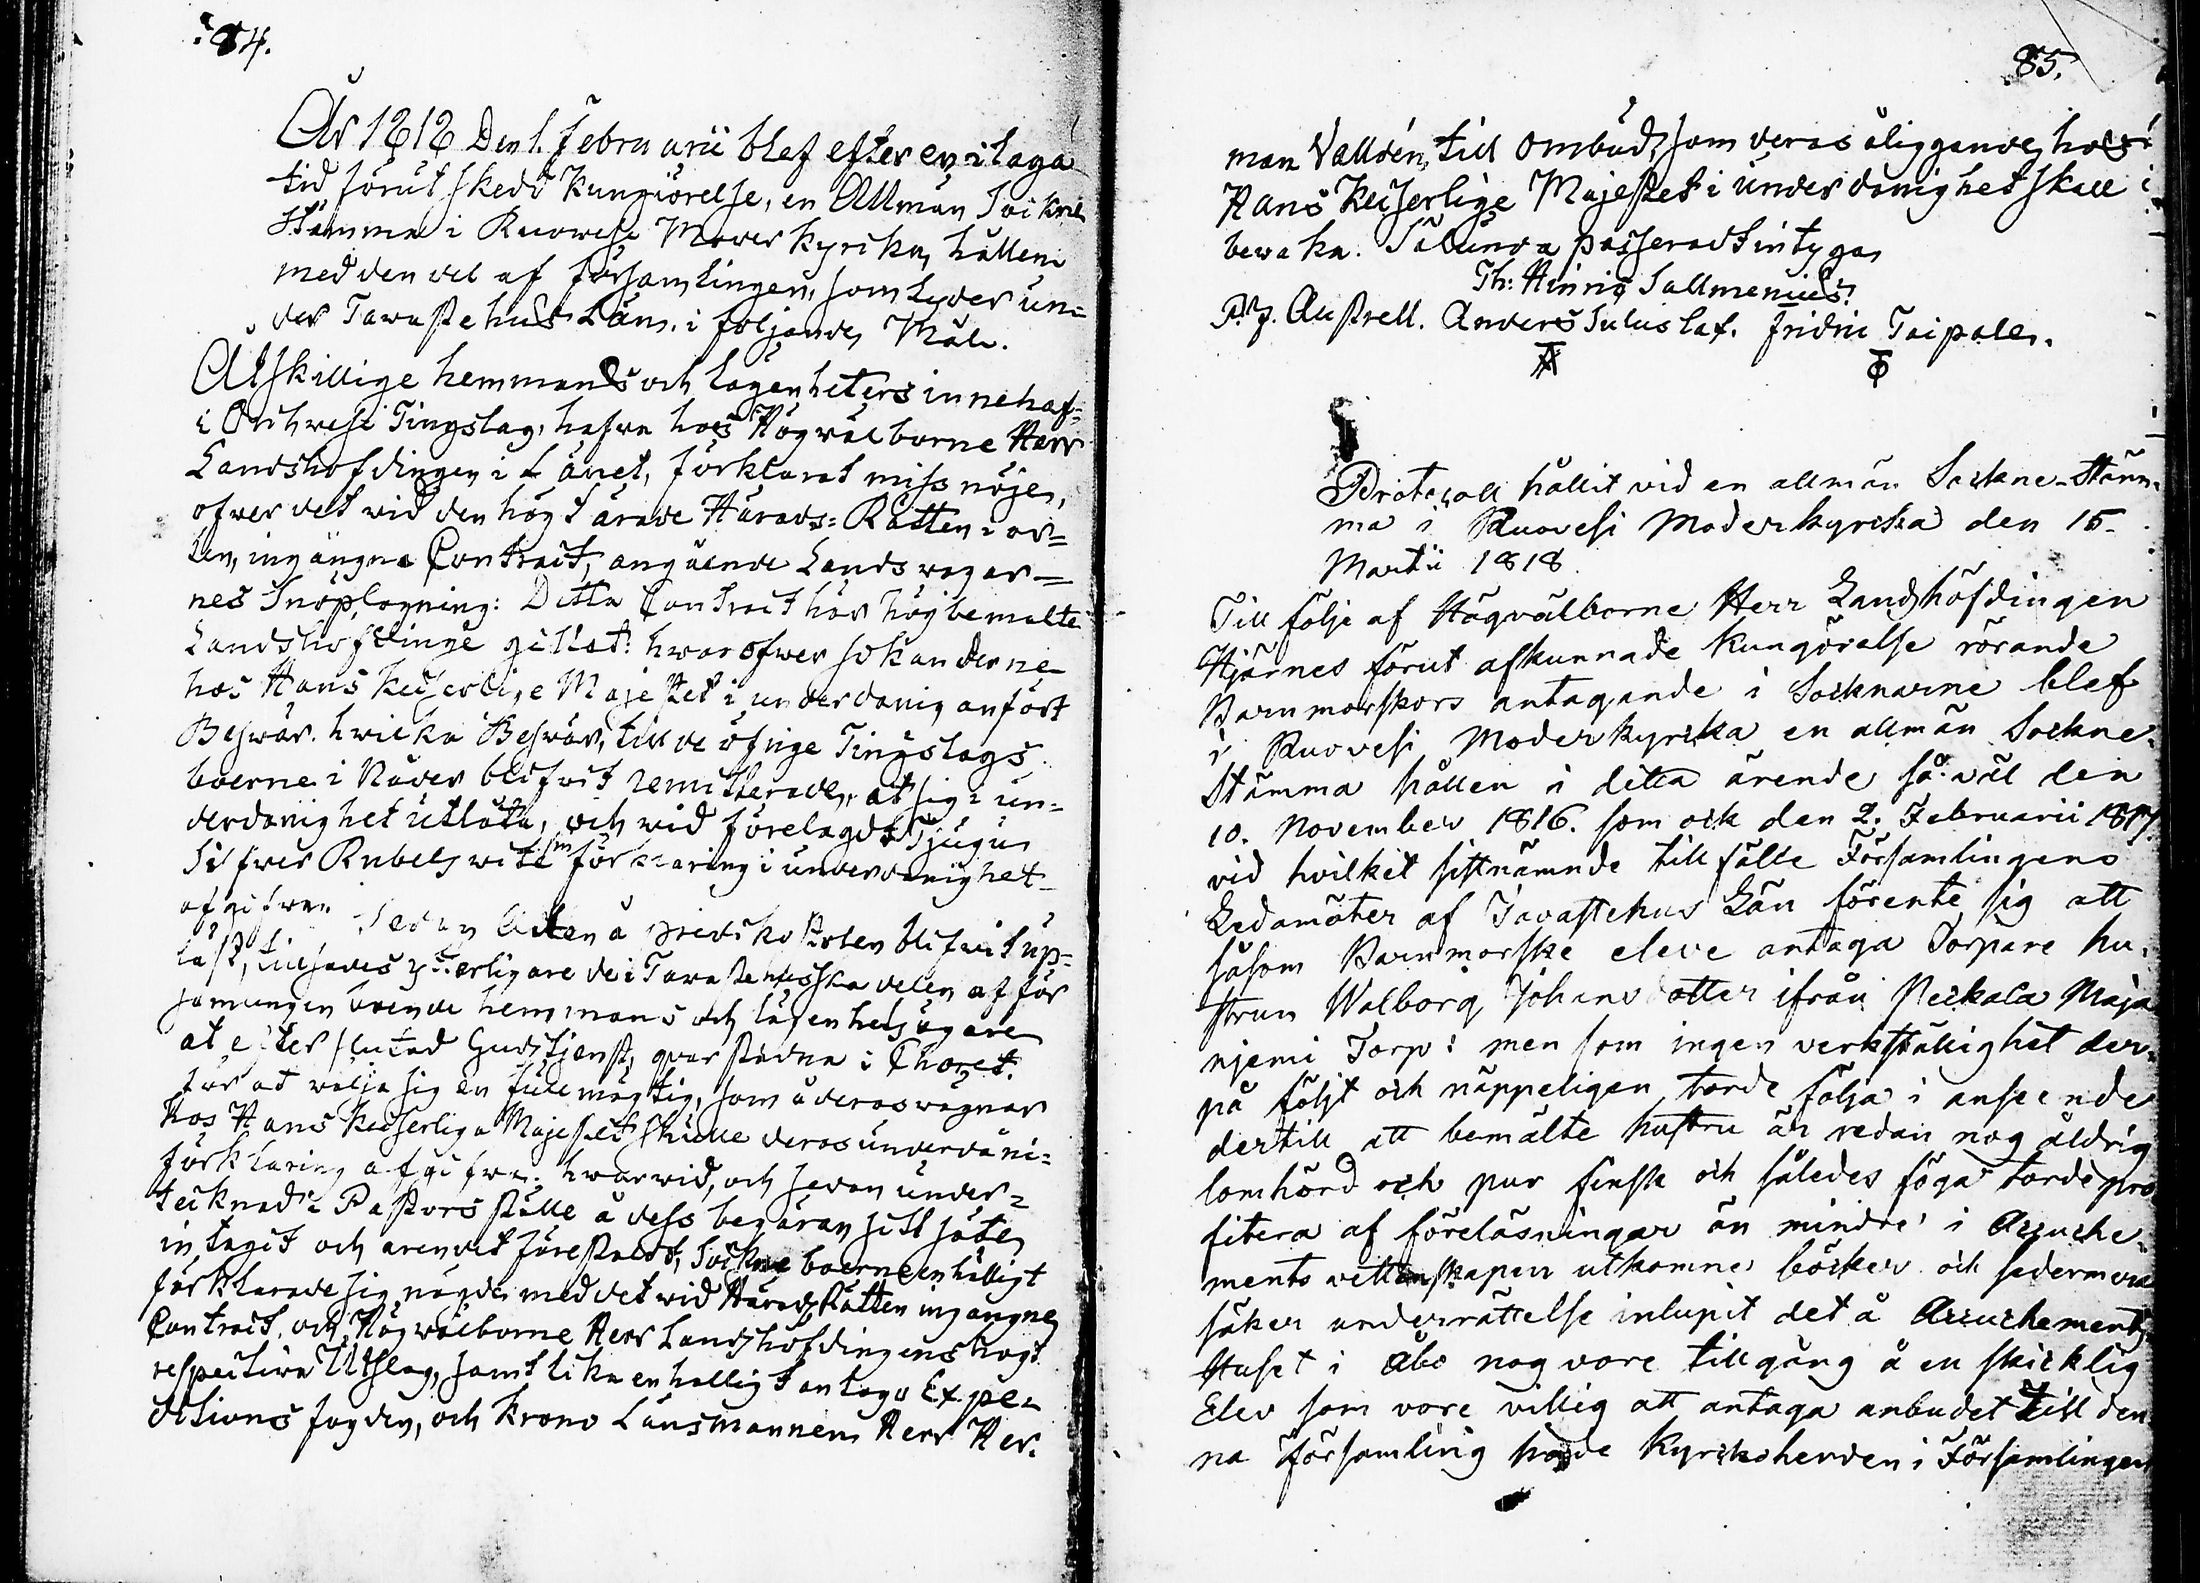 84.
År 1818 Den 1. Februarii blef efter en i laga
tid förut skedd Kungiörelse, en Allmän Sockne
Stämma i Ruowesi Moder kyrcka, hållen
med den del af församlingen, som lyder un=
der Tawastehus Län, i följande Mål.
Åtskillige hemmans och lägenheters innehaf=
i Orihwesi Tingslag, hafwa hos Högwälborne Herr
Landshöfdingen i Länet, förklarat missnöje,
öfwer det wid den högtärade Härads=Rätten i or=
ten, ingångna Contract, angående Landswägar=
nes Snöplogning: Detta Contract har högbemälte
Landshöfdinge gillat: hwaröfwer sökanderne
hos Hans Keijserlige Majestet i underdånig anfört
Beswär. hwilka Beswär, till de öfrige Tingslags
boerne i Nåder blifwit remitterade, at sig i un=
derdånighet utlåta, och wid förelagdt Tjugu
Silfwer Rubels wite förklaring i underdånighet
afgifwa.
Sedan å predikostolen blifwit up=
läst, tillsades ytterligare de i Tawastehusska delen af för
samlingen boende hemmans och lägenhets ägare
at efter slutad Gudstjenst, qwarstadna i Choret.
för at wälja sig en fullmägtig, som å deras wägnar
hos Hans Keijserliga Majestet skulle deras underdåni=
förklaring afgifwa. hwarwid, och sedan under=
tecknad i Pastors ställe å dess begäran sitt säte
intagit och ärendet föreståldt, Sockne boerne enhälligt
förklarade sig nögde med det wid Härads Rätten ingångne
Contract, och Högwälborne Herr Landshöfdingens högt
respective Utslag, samt lika enhälligt antaga Expe=
ditions fogden, och Krono Länsmannen Herr Her=
85.
man Valldén, till ombud, som deras åliggande hos
Hans Keijserlige Majestet i underdånighet skall
bewaka. Sålunda passeradt intygar
Th: Hinric Sallmenius.
P. J. Austrell. Anders Suluslaf. Fridric Taipale.
Protocoll hållit vid en allmän Sockne-Stäm-
ma i Ruovesi Moderkyrcka den 15
Martii 1818.
Till följe af Högvälborne Herr Landshöfdingen
Hjärnes förut afkunnade Kungörelse rörande
Barnmorskors antagande i Socknarne blef
i Ruovesi Moderkyrcka en allmän Sockne-
Stämma hållen i detta ärende så väl den
10. November 1816. som ock den 2. Februarii 1817
vid hvilket sistnämnde tillfälle Församlingens
Ledamöter af Tavastehus Län förente sig att
såsom Barnmorske eleve antaga Torpare hu-
strun Walborg Johansdotter ifrån Peckala Maja
njemi Torp: men som ingen verkställighet der-
på följt och näppeligen torde följa i anseende
dertill att bemälte hustru är redan nog åldrig
lomhörd och pur finsk och således föga torde pro
fitera af föreläsningar än mindre i Accuche-
ments vettenskapen utkomne böcker och sedermera
säker underrättelse inlupit det å Accuchements
Huset i Åbo nog vore tillgång å en skicklig
Elev som vore villig att antaga anbudet till den
na församling hade Kyrckoherden i Församlingen